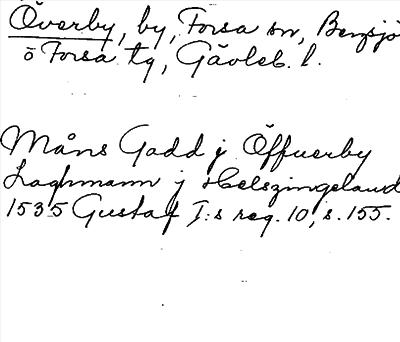 Överby, by, Forsa sn, Bergsjö
o Forsa tg, Gävleb. l.
Måns Gadd j Öffuerby
Laghmann j Helszingeland
1535 Gustaf I:s reg. 10, s. 155.